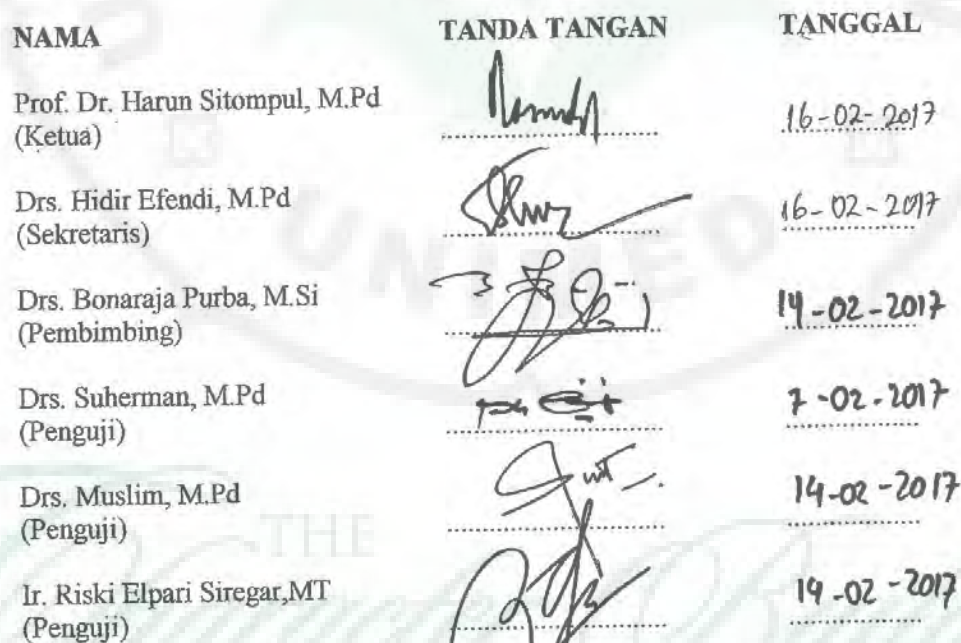 NAMA TANDA TANGAN TANGGAL
Prof. Dr. Harun Sitompul, M.Pd
(Ketua) 16-02-2017
Drs. Hidir Efendi, M.Pd
(Sekretaris) 16-02-2017
Drs. Bonaraja Purba, M.Si
(Pembimbing) 14-02-2017
Drs. Suherman, M.Pd
(Penguji) 7-02-2017
Drs. Muslim, M.Pd
(Penguji) 14-02-2017
Ir. Riski Elpari Siregar,MT
(Penguji) 14-02-2017
UNIMED
THE